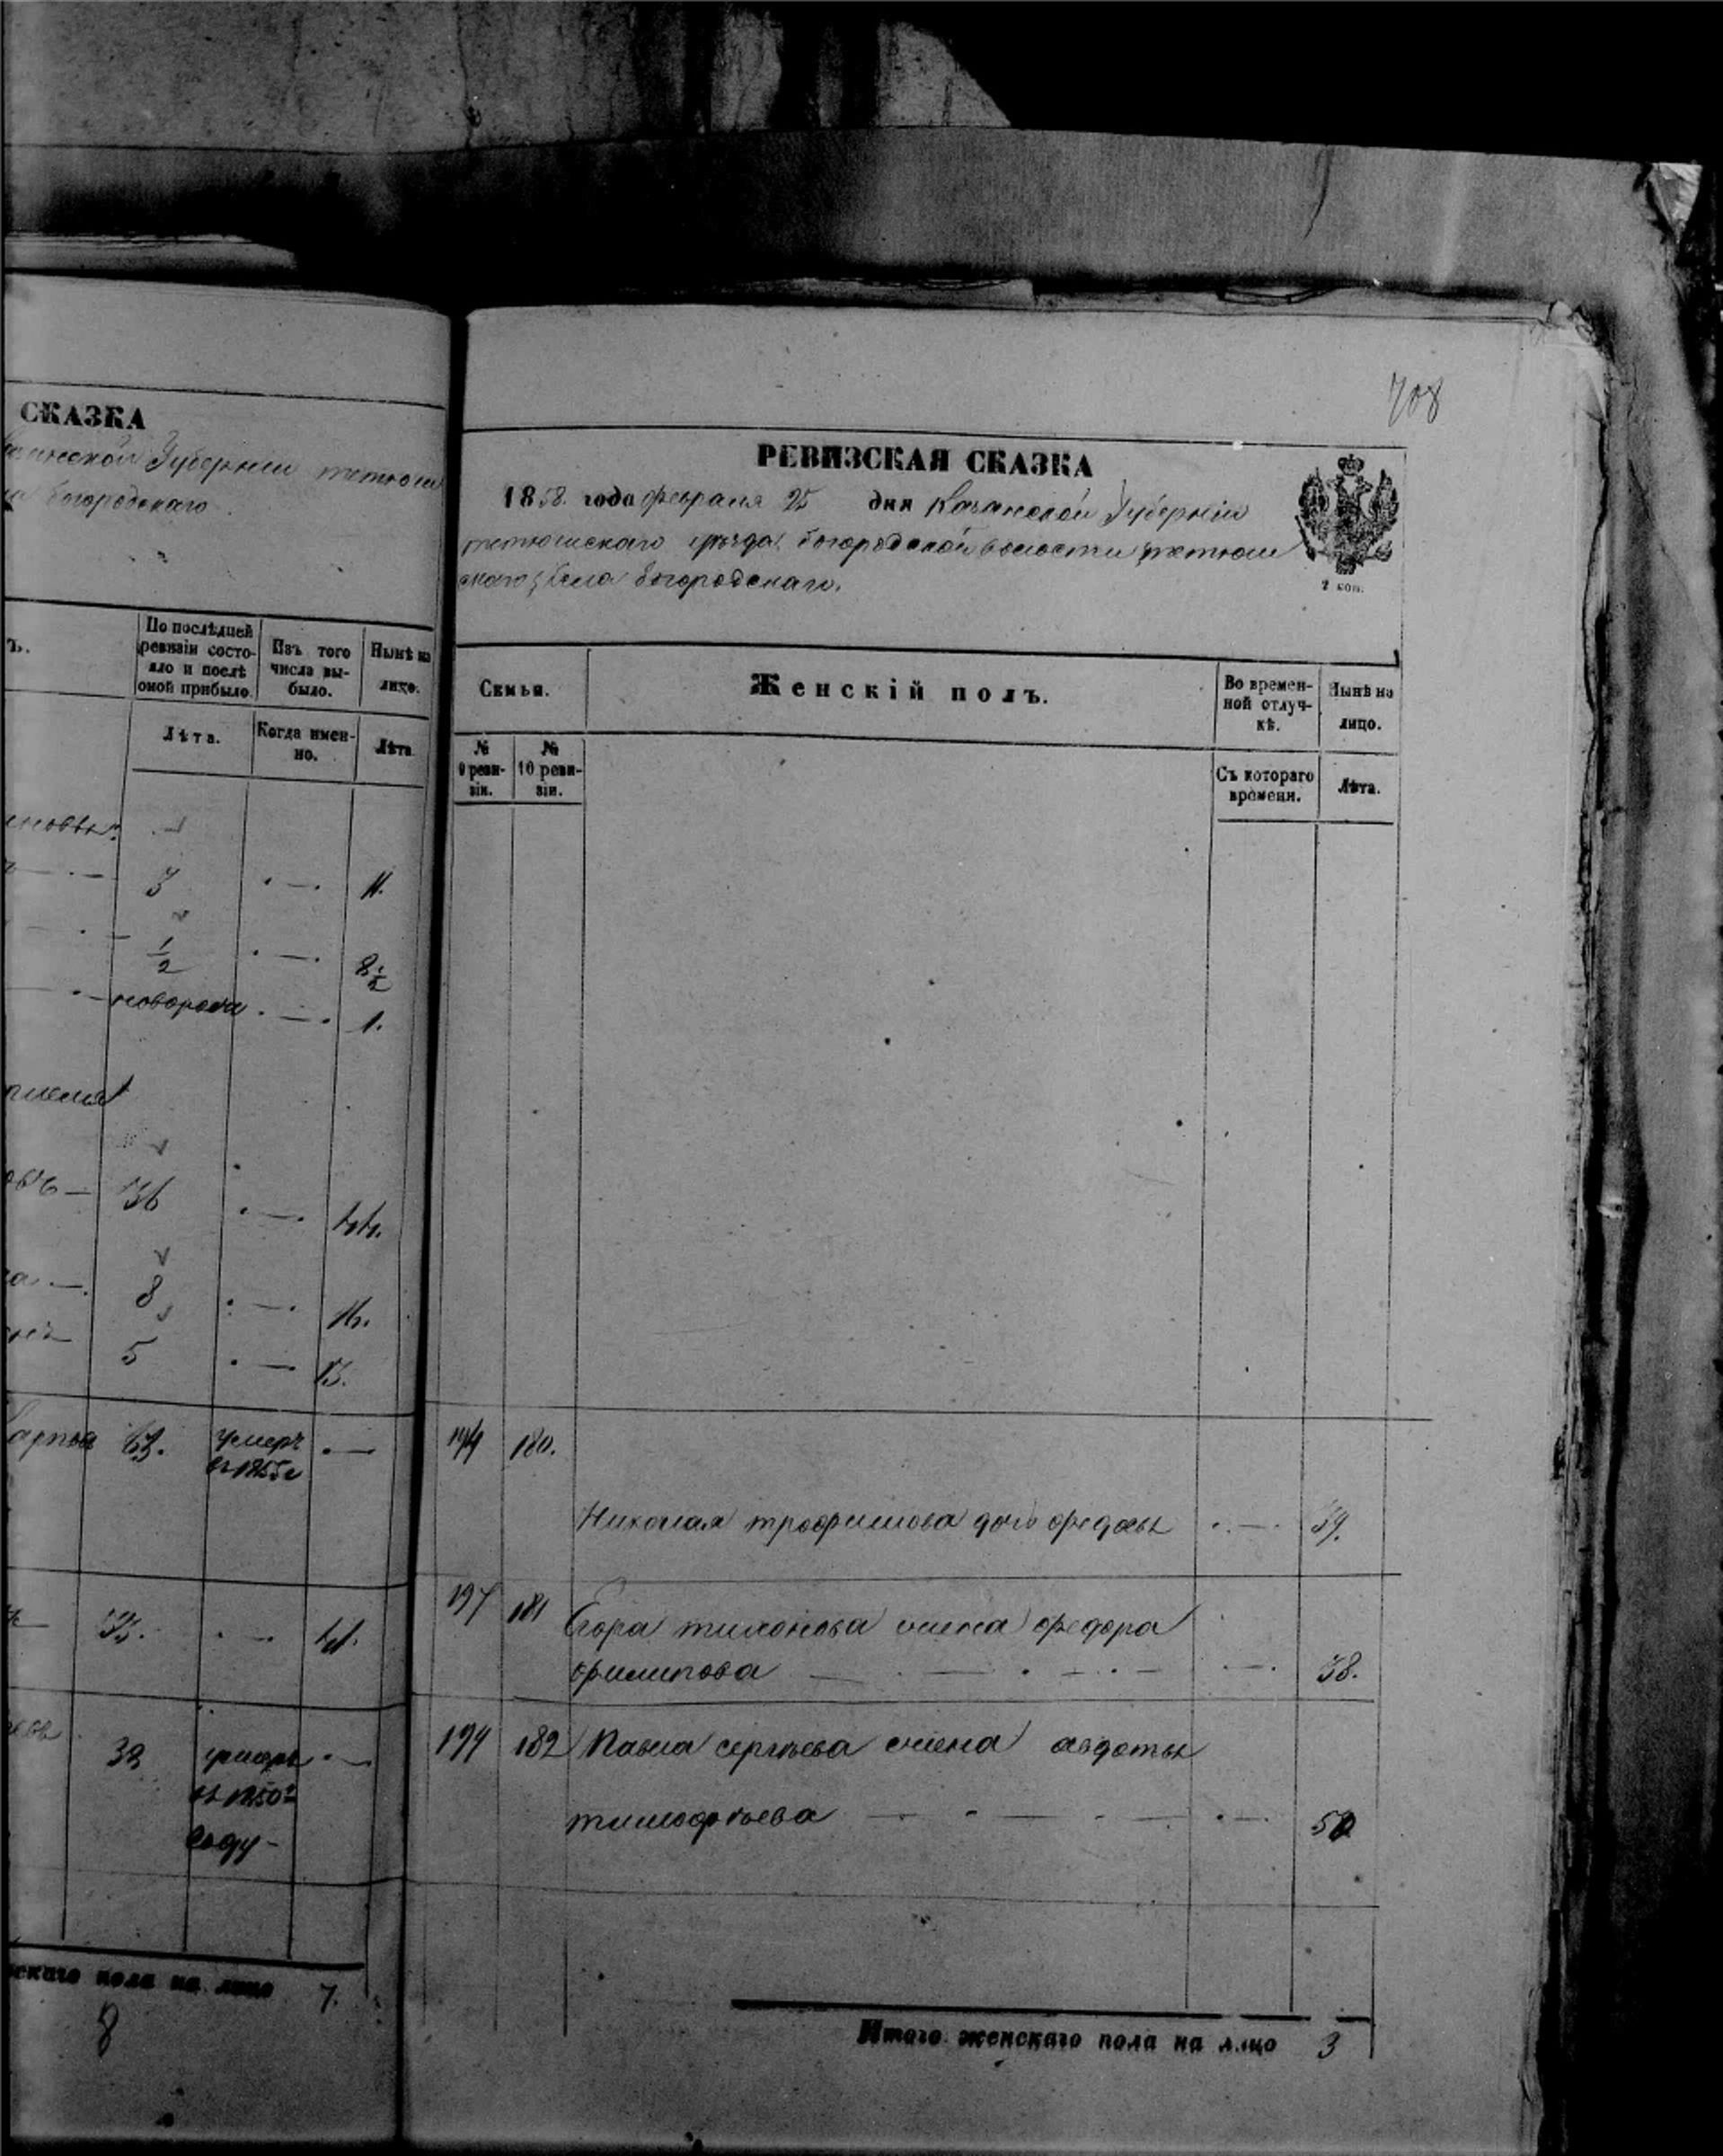 СКАЗКА
Губернии тетюш
богородскаго
ъ.
По послѣдней
ревизіи состо-
яло и послѣ
оной прибыло.
Изъ того
числа вы-
было.
Нынѣ на
лицо.
Лѣта.
Когда имен-
но.
Лѣта
3 11.
1/2 8 1/2
новорож 1.
36 44.
8 16.
5 13.
63. умеръ
въ 1855 г
41.
умеръ
въ 1850 г
году
скаго пола на лицо 7.
8
708
РЕВИЗСКАЯ СКАЗКА
1858. года февраля 25 дня Казанской Губерніи
тетюшскаго уѣзда богородской волости тетюш
скаго села богородскаго.
2 коп.
Семьи.
Женскій полъ.
Во времен-
ной отлуч-
кѣ.
Нынѣ на
лицо.
№
9 реви-
зіи.
№
10 реви-
зіи.
Съ котораго
времени.
Лѣта.
180.
Николая трофимова дочь федосья 39.
197 181 Егора тихонова жена федора
филипова 38.
199 182 Павла сергѣева жена авдотья
тимофѣева 50
Итого женскаго пола на лицо 3